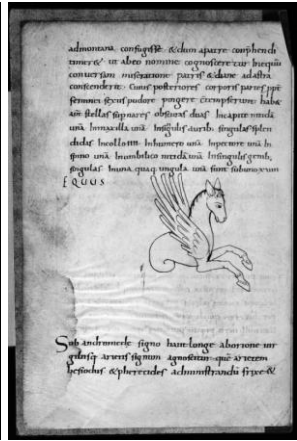 admontana confugisse & dum apatre comphendi
timer& ut abeo nomine cognoscere
conversam miseratione patris & diane adastra
Cuius posteriores corporis partes
sermonis sexus pudore pingere hab&
aut stellas obscuras duas Incapite nitida
unā Inmaxilla unā Insingulis aurib; singulas splen
didas Incollo Inhumero unā Inpectore unā In
spina unā Inumbilico nitidā unā Insingulis genib;
singulas Inuna quaq; ungula unā sunt
EQUUS
Sub andromede signo haut longe aborione
arietis signum agnoscitur quē arietem
hesiodus & pherecides administrandi frixe &